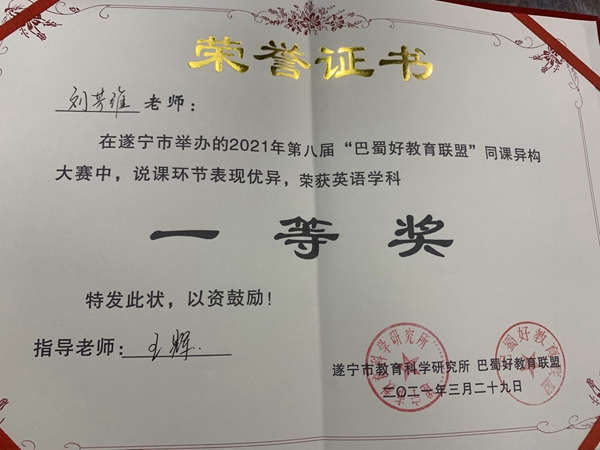 荣誉证书
刘 老师：
在遂宁市举办的2021年第八届“巴蜀好教育联盟”同课异构
大赛中，说课环节表现优异，荣获英语学科
一等奖
特发此状，以资鼓励！
指导老师：王辉
遂宁市教育科学研究所 巴蜀好教育联盟
二〇二一年三月二十九日